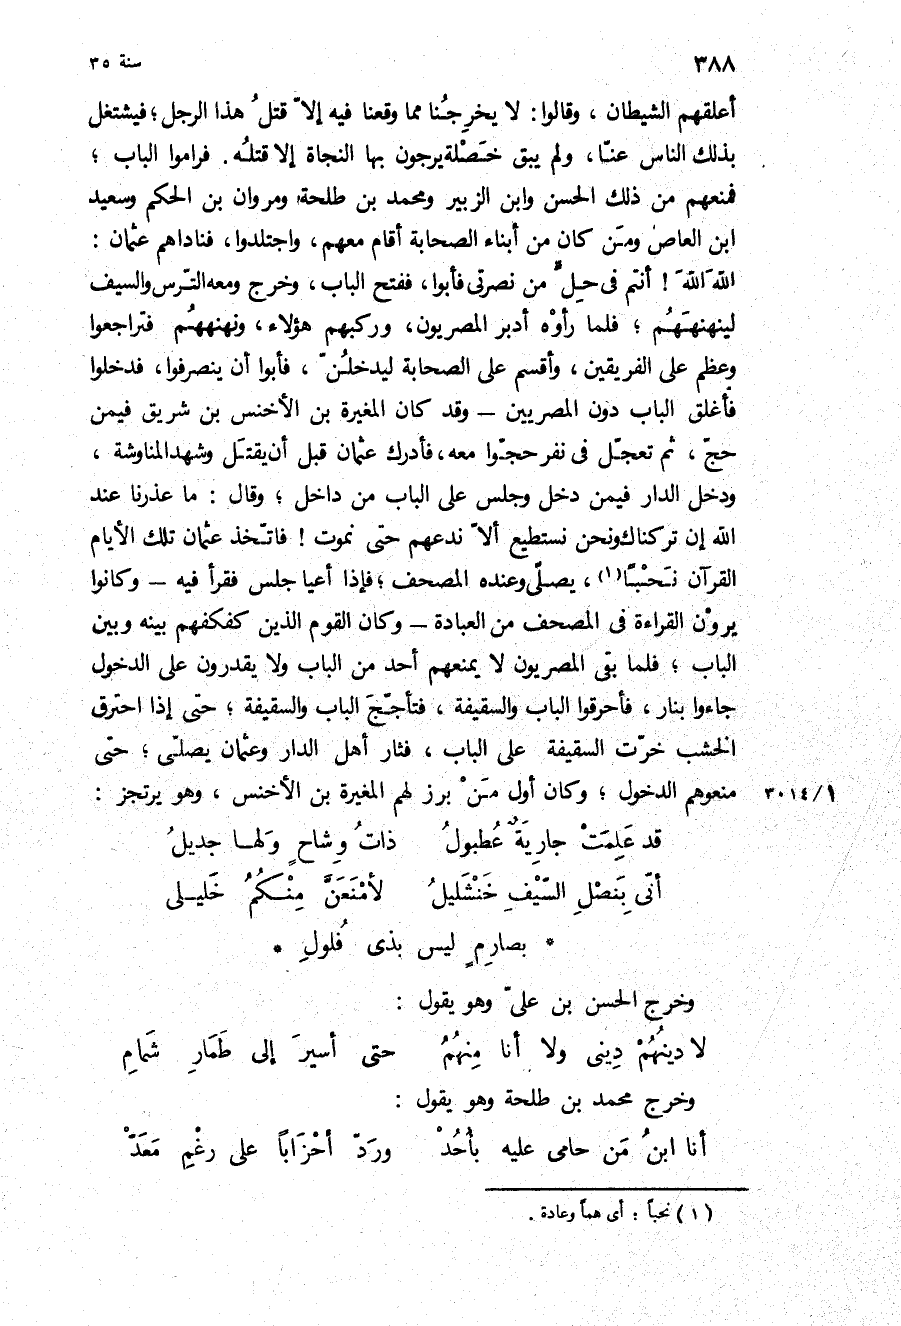 ٣٨٨
سنة ٣٥
أعلقهم الشيطان ، وقالوا : لا يخرِجُنا مما وقعنا فيه إلاّ قتلُ هذا الرجل ؛ فيشتغل
بذلك الناس عنّا ، ولم يبق خَصْلة يرجون بها النجاة إلا قتلُه . فراموا الباب ؛
فمنعهم من ذلك الحسن وابن الزبير ومحمد بن طلحة ومروان بن الحكم وسعيد
ابن العاص ومَن كان من أبناء الصحابة أقام معهم ، واجتلدوا ، فناداهم عثمان :
اللهَ اللهَ ! أنتم فى حِلّ من نصرتى فأبوا ، ففتح الباب ، وخرج ومعه التّرس والسيف
لينهنِهَهُم ؛ فلما رأوْه أدبر المصريون ، وركبهم هؤلاء ، ونهنههُم فتراجعوا
وعظم على الفريقين ، وأقسم على الصحابة ليدخلُنّ ، فأبوا أن ينصرفوا ، فدخلوا
فأغلق الباب دون المصريين – وقد كان المغيرة بن الأخنس بن شريق فيمن
حجّ ، ثم تعجّل فى نفر حجّوا معه ، فأدرك عثمان قبل أن يقتَل وشهد المناوشة ،
ودخل الدار فيمن دخل وجلس على الباب من داخل ؛ وقال : ما عذرنا عند
الله إن تركناك ونحن نستطيع ألاّ ندعهم حتى نموت ! فاتّخذ عثمان تلك الأيام
القرآن نَحْبًا (١) ، يصلّى وعنده المصحف ؛ فإذا أعيا جلس فقرأ فيه – وكانوا
يروْن القراءة فى المصحف من العبادة – وكان القوم الذين كفكفهم بينه وبين
الباب ؛ فلما بقى المصريون لا يمنعهم أحد من الباب ولا يقدرون على الدخول
جاءوا بنار ، فأحرقوا الباب والسقيفة ، فتأجّجَ الباب والسقيفة ؛ حتى إذا احترق
الخشب خرّت السقيفة على الباب ، فثار أهل الدار وعثمان يصلّى ؛ حتى
منعوهم الدخول ؛ وكان أول مَنْ برز لهم المغيرة بن الأخنس ، وهو يرتجز :
٣٠١٤/١
قد عَلِمَتْ جارِيَةٌ عُطبولُ ذاتُ وِشاحٍ وَلها جديلُ
أنّى بِنَصْلِ السّيْفِ خَنْشَليلُ لأمْنَعَنَّ مِنْكُمُ خَليلى
* بصارِمٍ ليس بذى فُلولِ *
وخرج الحسن بن علىّ وهو يقول :
لا دينهُمْ دِينى ولا أنا مِنهُمُ حتى أسيرَ إلى طَمَارِ شَمامِ
وخرج محمد بن طلحة وهو يقول :
أنا ابنُ مَن حامى عليه بأُحُدْ ورَدّ أحْزَاباً على رغْمِ مَعَدّْ
(١) نحباً : أى هماً وعادة .